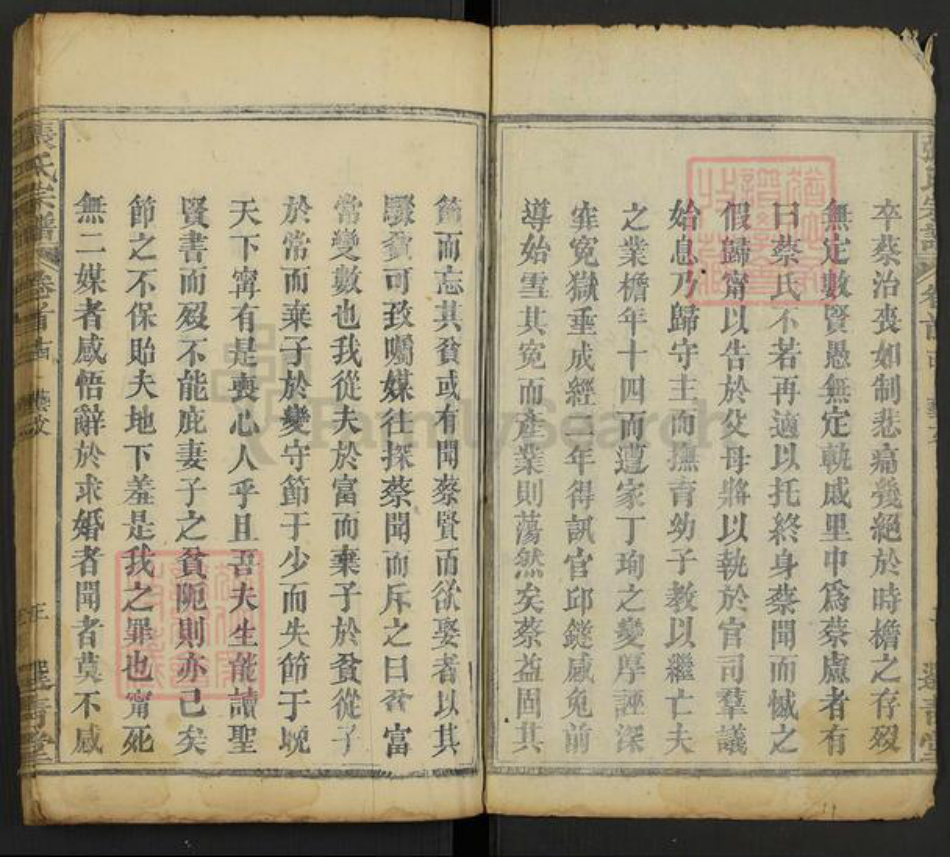 卒蔡治喪如制悲痛幾絕於時檐之存歿
無定數賢愚無定軌戚里中為蔡慮者有
曰蔡氏不若再適以托終身蔡聞而慽之
假歸甯以告於父母將以執於官司羣議
始息乃歸守主而撫育幼子教以繼亡夫
之業檐年十四而遭家丁珣之變厚誣深
寃獄垂成經二年得訊官邱鐩感兔前
導始雪其寃而產業則蕩然矣蔡益固其
節而忘其貧或有聞蔡賢而欲娶者以其
驟貧可致囑媒往探蔡聞而斥之曰貧富
常變數也我從夫於富而棄子於貧從子
於常而棄子於變守節于少而失節于晚
天下甯有是喪心人乎且吾夫生能讀聖
賢書而歿不能庇妻子之貧阨則亦已矣
節之不保貽夫地下羞是我之罪也甯死
無二媒者感悟辭於求婚者聞者莫不感
張氏宗譜 卷首 藝文 選青堂
FamilySearch